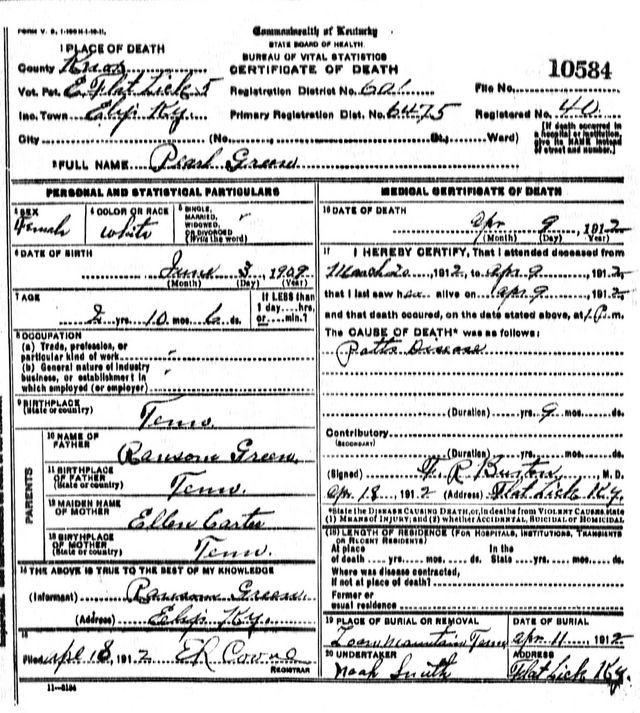 FORM V. S. 1-100M-10-11.
Commonwealth of Kentucky
STATE BOARD OF HEALTH.
BUREAU OF VITAL STATISTICS
CERTIFICATE OF DEATH
1 PLACE OF DEATH
County Knox
Vot. Pct. E Flat Lick 5
Inc. Town Elys Ky.
City (No. St., Ward)
Registration District No. 601
Primary Registration Dist. No. 6475
10584
File No.
Registered No. 40
[If death occurred in a hospital or institution, give its NAME instead of street and number.]
2 FULL NAME Pearl Green
PERSONAL AND STATISTICAL PARTICULARS
3 SEX
Female
4 COLOR OR RACE
White
5 SINGLE, MARRIED, WIDOWED, OR DIVORCED
(Write the word)
6 DATE OF BIRTH
June 3, 1909
(Month) (Day) (Year)
7 AGE
2 yrs. 10 mos. 6 ds.
If LESS than 1 day....hrs. or....min.?
8 OCCUPATION
(a) Trade, profession, or particular kind of work
(b) General nature of industry business, or establishment in which employed (or employer)
9 BIRTHPLACE
(State or country)
Tenn.
PARENTS
10 NAME OF FATHER
Ransom Green
11 BIRTHPLACE OF FATHER
(State or country)
Tenn.
12 MAIDEN NAME OF MOTHER
Ellen Carter
13 BIRTHPLACE OF MOTHER
(State or country)
Tenn.
14 THE ABOVE IS TRUE TO THE BEST OF MY KNOWLEDGE
(Informant) Ransom Green
(Address) Elys Ky.
15
Filed Apl 18, 1912 E R
REGISTRAR
11-3184
MEDICAL CERTIFICATE OF DEATH
16 DATE OF DEATH
Apr 9 1912
(Month) (Day) (Year)
17 I HEREBY CERTIFY, That I attended deceased from
March 20, 1912, to Apr 9, 1912
that I last saw her alive on Apr 9, 1912
and that death occured, on the date stated above, at 1 P.m.
The CAUSE OF DEATH* was as follows:
Potts Disease
(Duration) yrs. 9 mos. ds.
Contributory
(SECONDARY)
(Duration) yrs. mos. ds.
(Signed) R Burton, M. D.
Apr 18, 1912 (Address) Flat Lick Ky.
*State the DISEASE CAUSING DEATH, or, in deaths from VIOLENT CAUSES, state
(1) MEANS of INJURY; and (2) whether ACCIDENTAL, SUICIDAL or HOMICIDAL
(18) LENGTH OF RESIDENCE (FOR HOSPITALS, INSTITUTIONS, TRANSIENTS OR RECENT RESIDENTS)
At place of death yrs. mos. ds. In the State yrs. mos. ds.
Where was disease contracted,
If not at place of death?
Former or usual residence
19 PLACE OF BURIAL OR REMOVAL
Mountain Tenn
DATE OF BURIAL
Apr 11, 1912
20 UNDERTAKER
Noah Smith
ADDRESS
Flat Lick Ky.